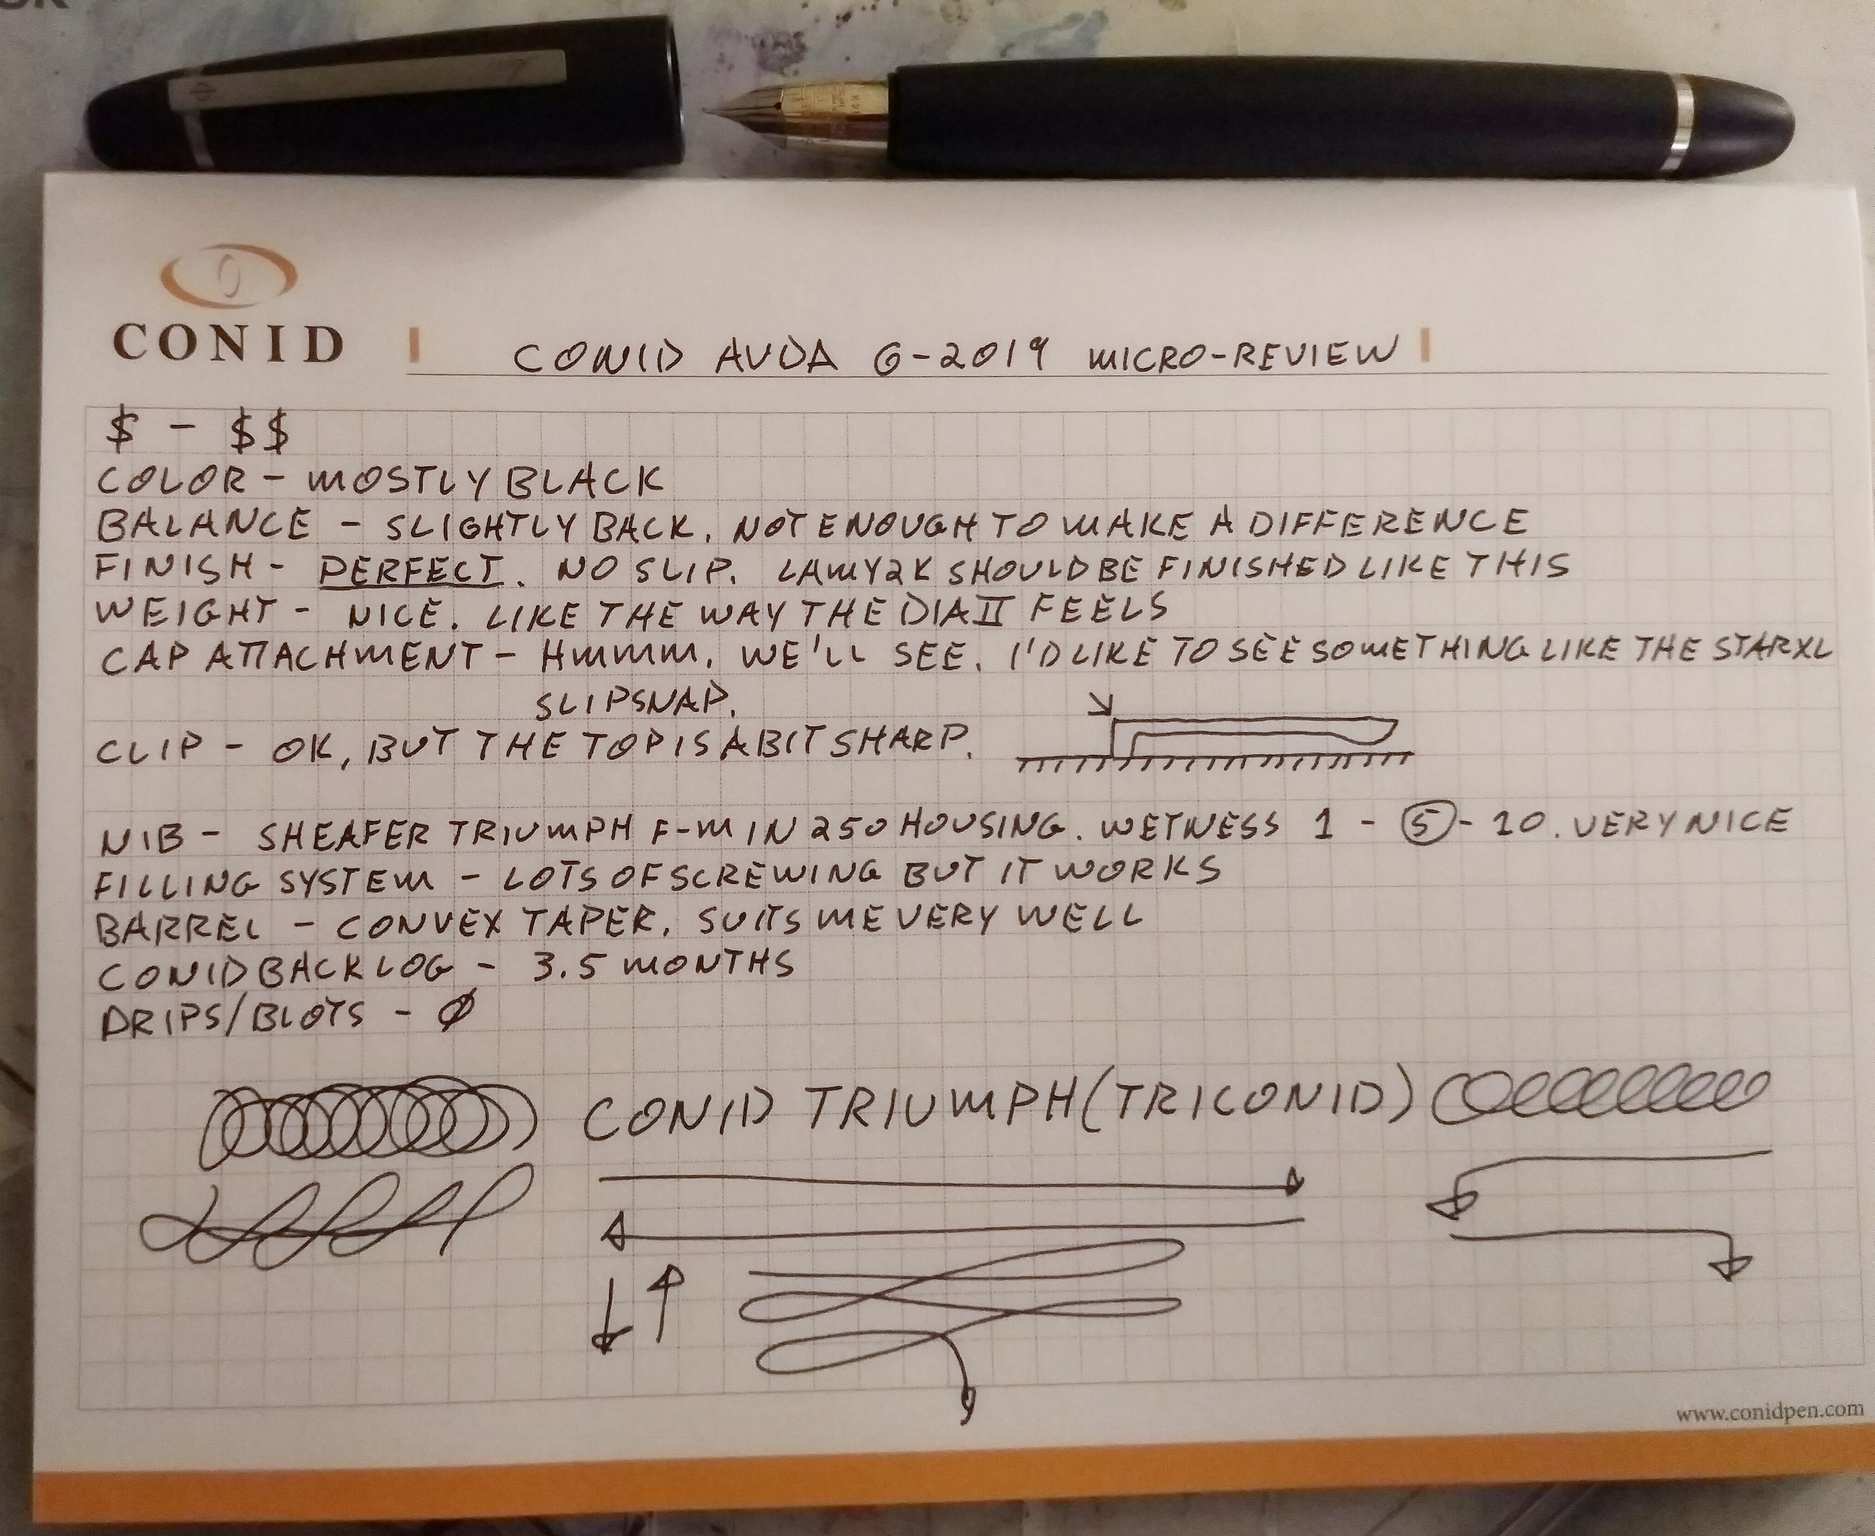 CONID
CONID AVDA 6-2019 MICRO-REVIEW
$ - $$
COLOR - MOSTLY BLACK
BALANCE - SLIGHTLY BACK. NOT ENOUGH TO MAKE A DIFFERENCE
FINISH - PERFECT. NO SLIP. LAMY2K SHOULD BE FINISHED LIKE THIS
WEIGHT - NICE. LIKE THE WAY THE DIA II FEELS
CAP ATTACHMENT - HMMM. WE'LL SEE. I'D LIKE TO SEE SOMETHING LIKE THE STARXL
SLIPSNAP.
CLIP - OK, BUT THE TOP IS A BIT SHARP.
NIB - SHEAFER TRIUMPH F-M IN 250 HOUSING. WETNESS 1 - 5 - 10. VERY NICE
FILLING SYSTEM - LOTS OF SCREWING BUT IT WORKS
BARREL - CONVEX TAPER. SUITS ME VERY WELL
CONID BACKLOG - 3.5 MONTHS
DRIPS/BLOTS - Ø
CONID TRIUMPH (TRICONID)
www.conidpen.com